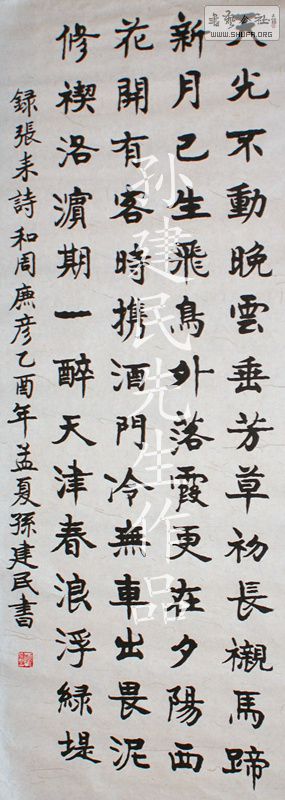 天光不動晚雲垂芳草初長襯馬蹄
新月已生飛鳥外落霞更在夕陽西
花開有客時携酒門冷無車出畏泥
修禊洛濱期一醉天津春浪浮綠堤
録張耒詩和周廉彦乙酉年孟夏孫建民書
孙建民先生作品
WWW.SHUFA.ORG